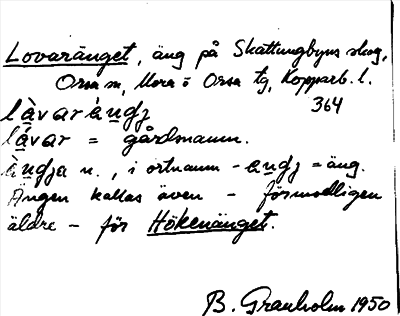 Lovaränget, äng på Skattungbyns skog,
Orsa sn, Mora o Orsa tg, Kopparb. l.
364
làvaràndj
làvar = gårdsnamn.
àndja n., i ortnamn - andj = äng.
Ängen kallas även - förmodligen
äldre - för Hökenänget.
B. Granholm 1950